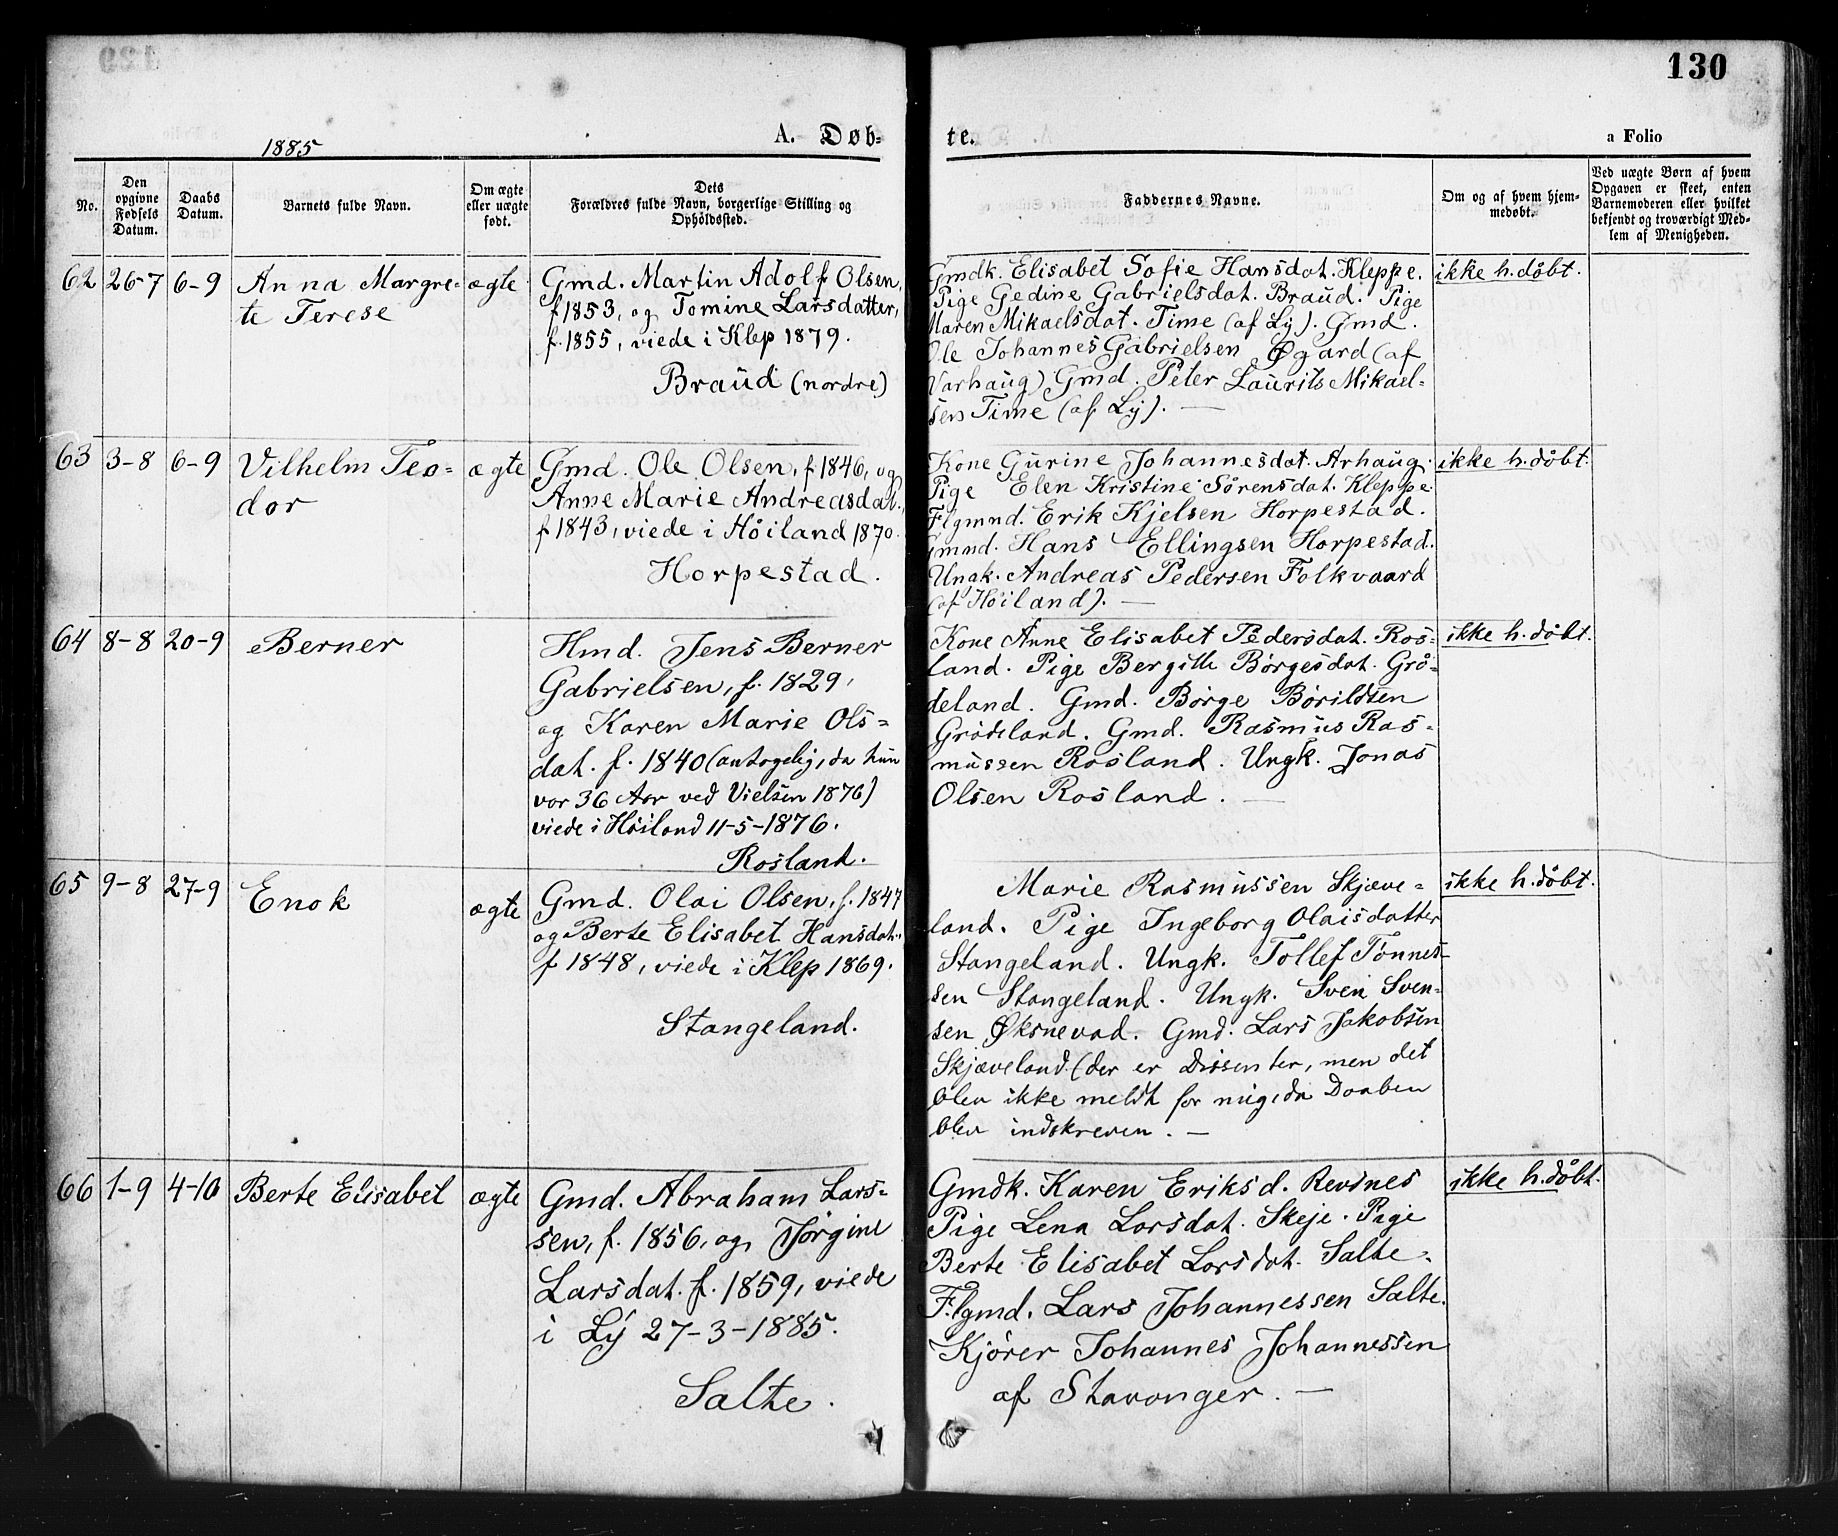 130
1885
A. Døb-
te.
a Folio
No.
Den
opgivne
Fødsels
Datum.
Daabs
Datum.
Barnets fulde Navn.
Om ægte
eller uægte
født.
Dets
Forældres fulde Navn, borgerlige Stilling og
Opholdssted.
Faddernes Navne.
Om og af hvem hjem-
medøbt.
Ved uægte Børn af hvem
Opgaven er skeet, enten
Barnemoderen eller hvilket
bekjendt og troværdigt Med-
lem af Menigheden.
62 26-7 6-9
Anna Margre-
te Terese
ægte
Gmd. Martin Adolf Olsen,
f 1853, og Tomine Larsdatter,
f. 1855, viede i Klep 1879.
Braud (nordre)
Gmdk. Elisabet Sofie Hansdat. Kleppe.
Pige Gedine Gabrielsdat. Braud. Pige
Maren Mikaelsdat. Time (af Ly). Gmd.
Ole Johannes Gabrielsen Øgard (af
Varhaug) Gmd. Peter Laurits Mikael-
sen Time (af Ly). —
ikke h. døbt.
63 3-8 6-9
Vilhelm Teo-
dor
ægte
Gmd. Ole Olsen, f 1846, og
Anne Marie Andreasdat.,
f 1843, viede i Höiland 1870.
Horpestad.
Kone Gurine Johannesdat. Arhaug.
Pige Elen Kristine Sörensdat. Kleppe.
Flgmnd. Erik Kjelsen Horpestad.
Gmnd. Hans Ellingsen Horpestad.
Ungk. Andreas Pedersen Folkvaard
(af Höiland). —
ikke h. døbt.
64 8-8 20-9
Berner
Hmd. Jens Berner
Gabrielsen, f. 1829,
og Karen Marie Ols-
dat. f. 1840 (antagelig, da hun
var 36 Aar ved Vielsen 1876)
viede i Höiland 11-5-1876.
Rosland.
Kone Anne Elisabet Pedersdat. Ros-
land. Pige Bergitte Börgesdat. Grö-
deland. Gmd. Börge Börildsen
Grödeland. Gmd. Rasmus Ras-
mussen Rosland. Ungk. Jonas
Olsen Rosland. —
ikke h. døbt.
65 9-8 27-9
Enok
ægte
Gmd. Olai Olsen, f. 1847
og Berte Elisabet Hansdat.
f 1848, viede i Klep 1869.
Stangeland.
Marie Rasmussen Skjæve-
land. Pige Ingeborg Olaisdatter
Stangeland. Ungk. Tollef Tønnes-
sen Stangeland. Ungk. Sven Sven-
sen Øksnevad. Gmd. Lars Jakobsen
Skjæveland (der er Dissenter, men det
blev ikke meldt for mig, da Daaben
blev indskreven. —
ikke h. døbt.
66 1-9 4-10
Berte Elisabet
ægte
Gmd. Abraham Lars-
sen, f. 1856, og Jörgine
Larsdat. f. 1859, viede
i Ly 27-3-1885.
Salte.
Gmdk. Karen Eriksd. Revines
Pige Lena Larsdat. Skeje. Pige
Berte Elisabet Larsdat. Salte.
Flgmd. Lars Johannessen Salte.
Kjörer Johannes Johannessen
af Stavanger. —
ikke h. døbt.